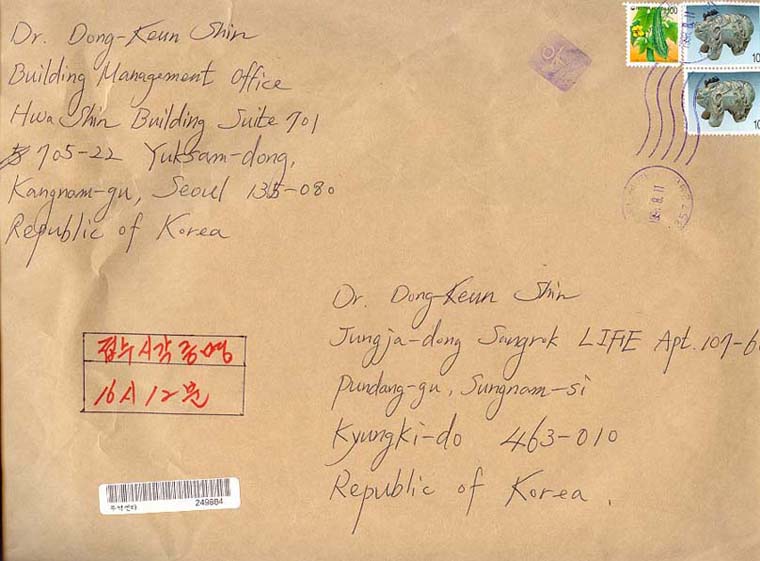 Dr. Dong-Keun Shin
Building Management Office
Hwa Shin Building Suite 701
705-22 Yuksam-dong,
Kangnam-gu, Seoul 135-080
Republic of Korea
Dr. Dong-Keun Shin
Jungja-dong Sangrok LIFE Apt. 107-6
Pundang-gu, Sungnam-si
Kyungki-do 463-010
Republic of Korea.
접수시각증명
16시12분
249884